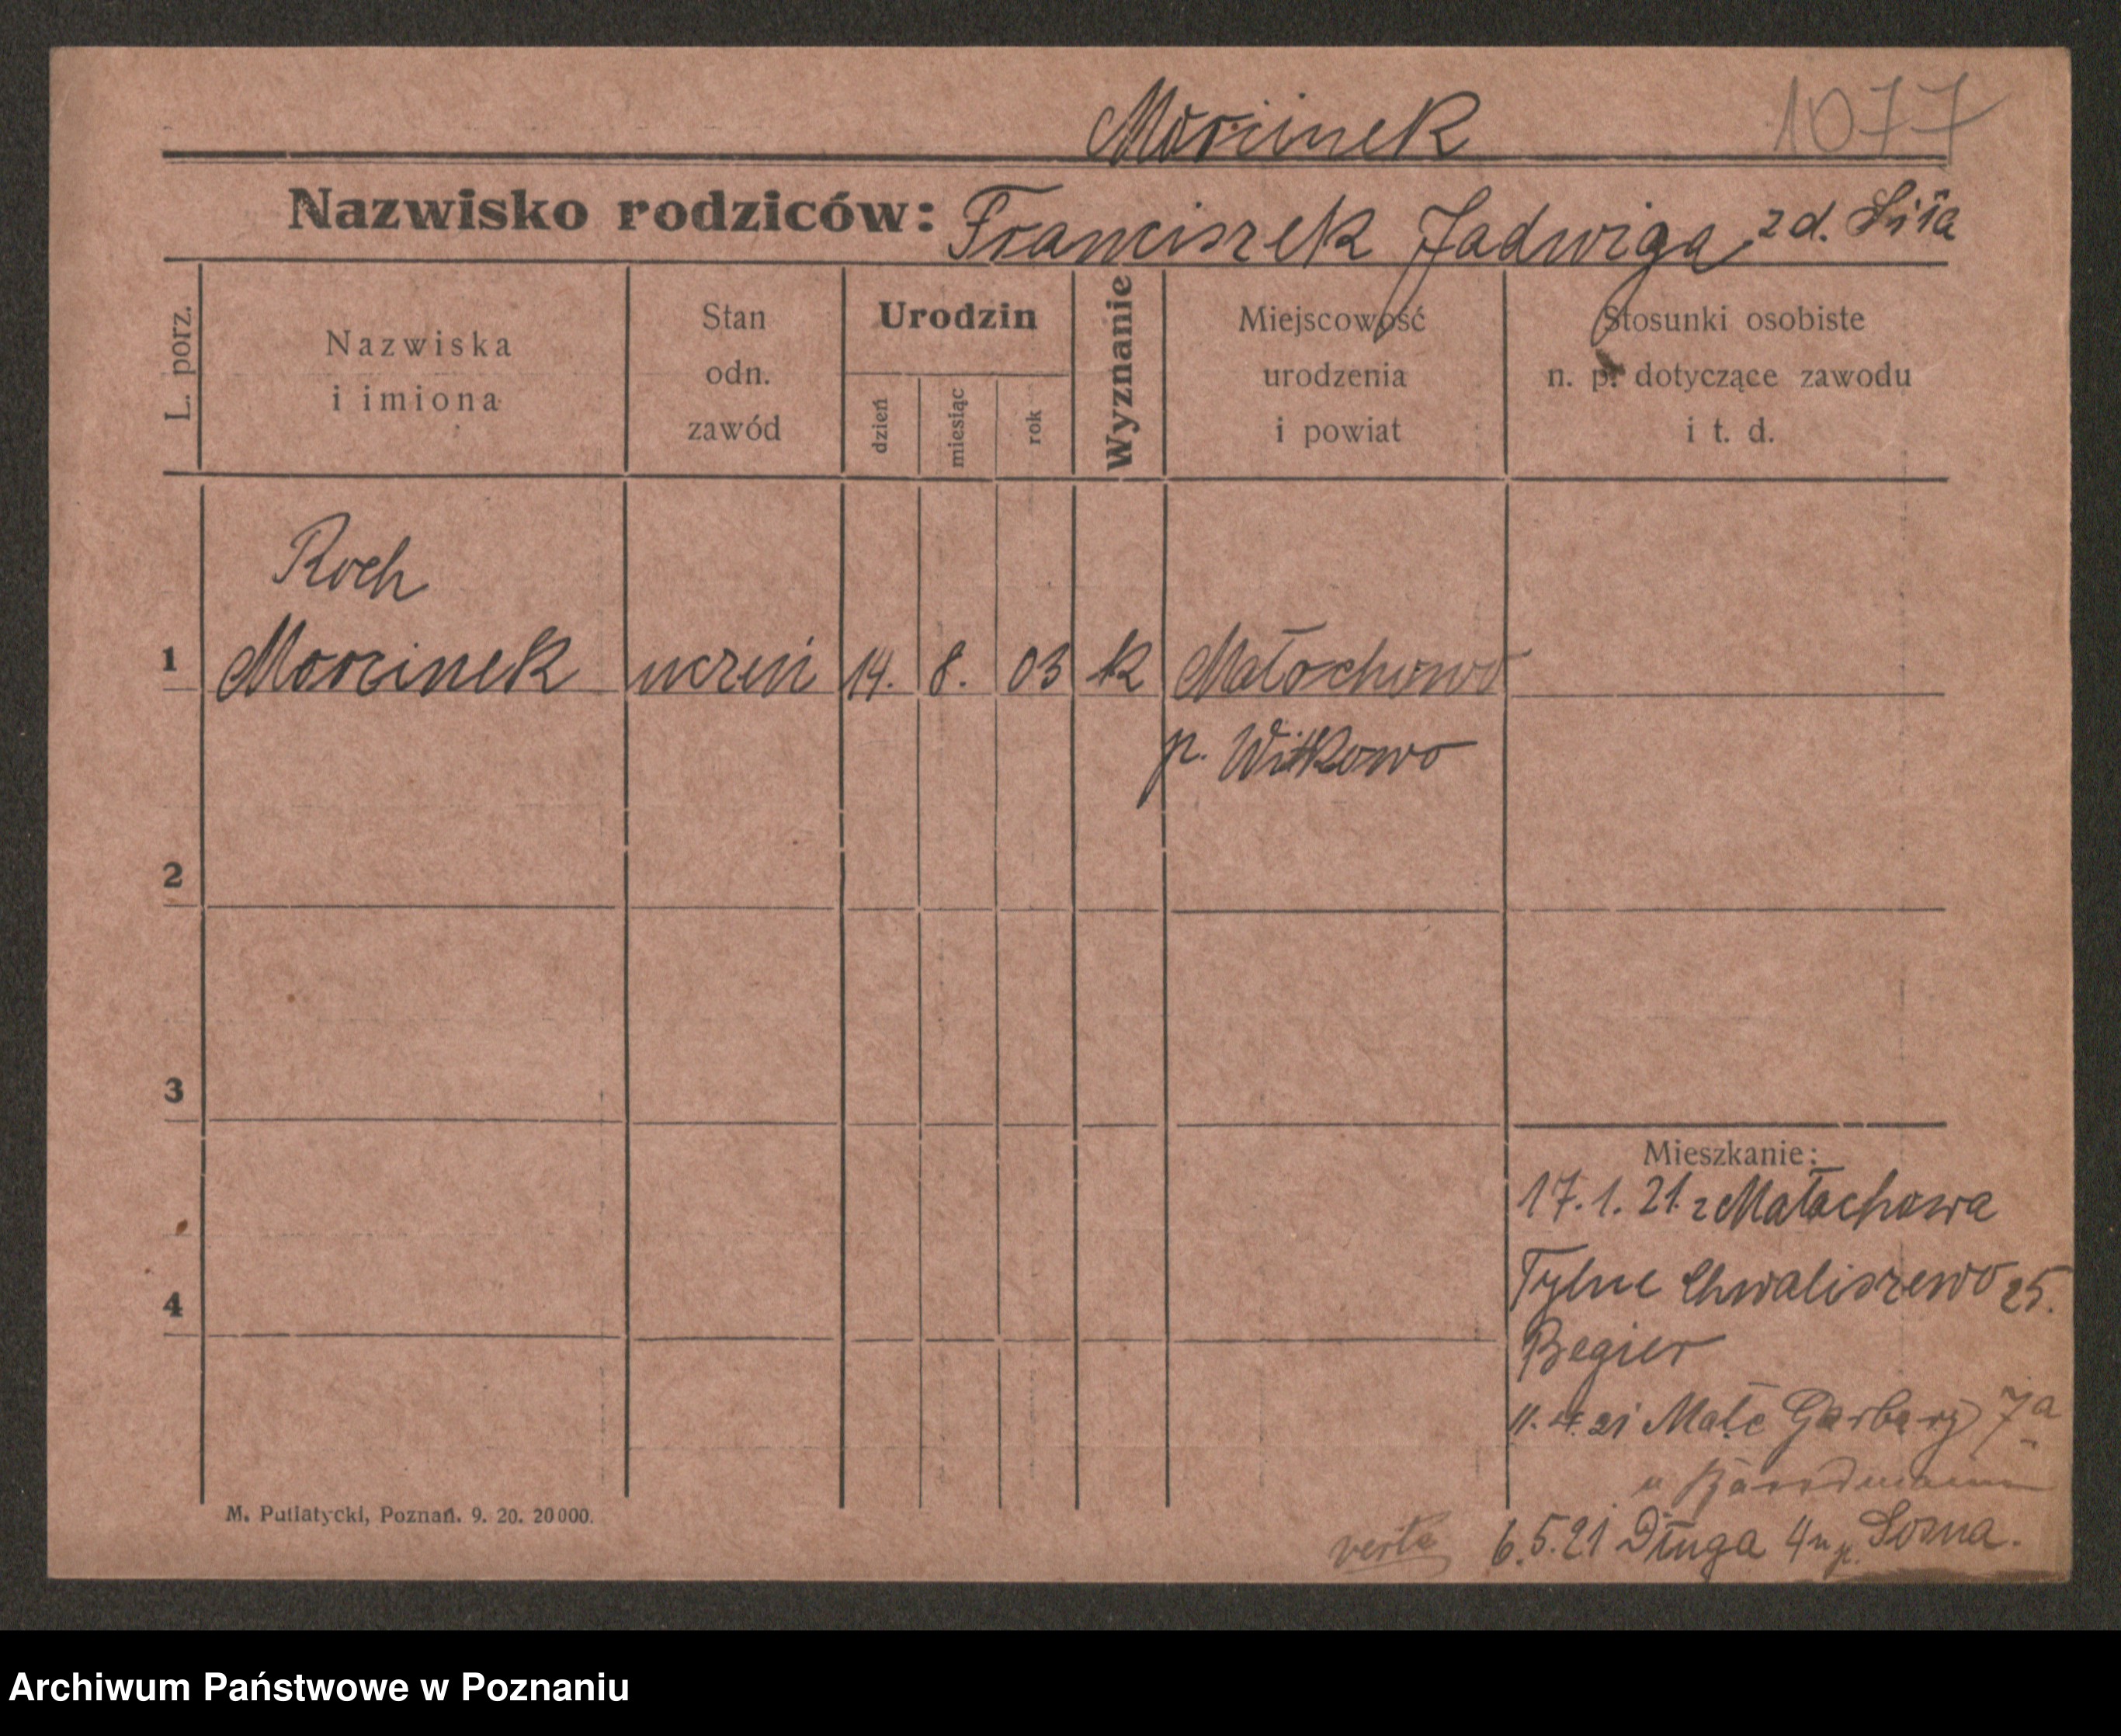 Morcinek 1077
Nazwisko rodziców: Franciszek Jadwiga z d.
L. porz.
Nazwiska
i imiona
Stan
odn.
zawód
Urodzin
dzień
miesiąc
rok
Wyznanie
Miejscowość
urodzenia
i powiat
Stosunki osobiste
n. p. dotyczące zawodu
i t. d.
Roch
1 Morcinek uczeń 14. 8. 03 k Małochowo
p. Witkowo
2
3
4
Mieszkanie:
17.1.21. z Małachowa
Tylne Chwaliszewo 25.
Begier
11. 21 Małe Garbary 7a
u
6.5.21 Długa 4 u p. Sosna.
verte
M. Putiatycki, Poznań. 9. 20. 20000.
Archiwum Państwowe w Poznaniu